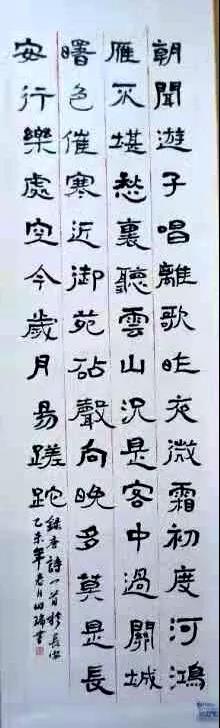 朝聞遊子唱離歌昨夜微霜初度河鴻
雁不堪愁裏聽雲山況是客中過關城
曙色催寒近御苑砧聲向晚多莫是長
安行樂處空令歲月易蹉跎
錄唐詩一首於長安
乙未年春月瑞書